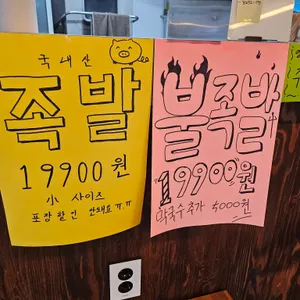 국내산
족발
19900원
小 사이즈
포장할인 안돼요 ㅠㅠ
불족발
19900원
막국수 추가 5000원